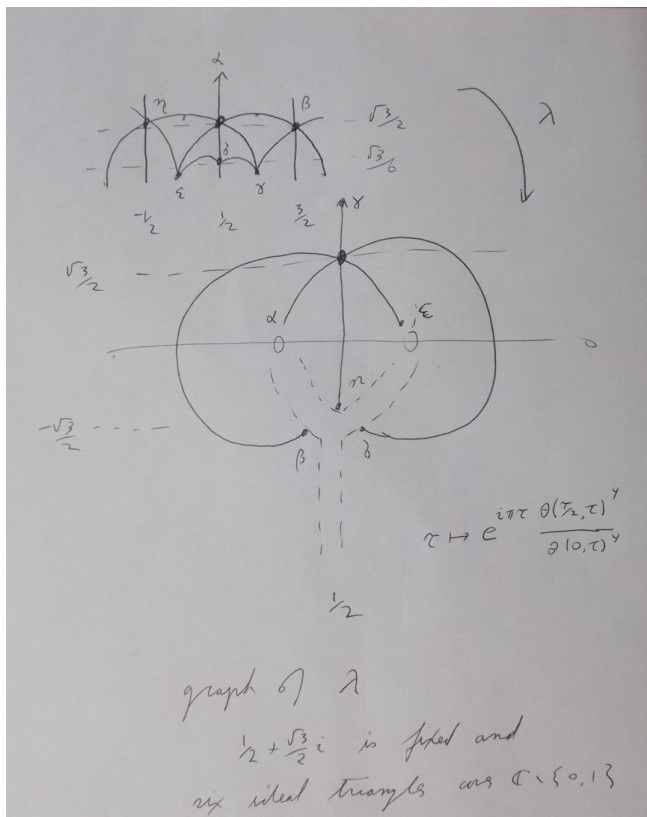 α
η
β
√3/2
δ
√3/6
ε
γ
λ
-1/2
1/2
3/2
γ
√3/2
α
ε
0
η
-√3/2
β
δ
τ ↦ e^{iπτ} θ(τ/2,τ)^4 / θ(0,τ)^4
1/2
graph of λ
1/2 + √3/2 i is fixed and
six ideal triangles are ℂ∖{0,1}